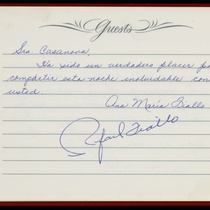 Guests
Sra Casanova,
Ha sido un verdadero placer po
compartir esta noche inolvidable con
usted.
Ana Maria Fiallo
Rafael Fiallo